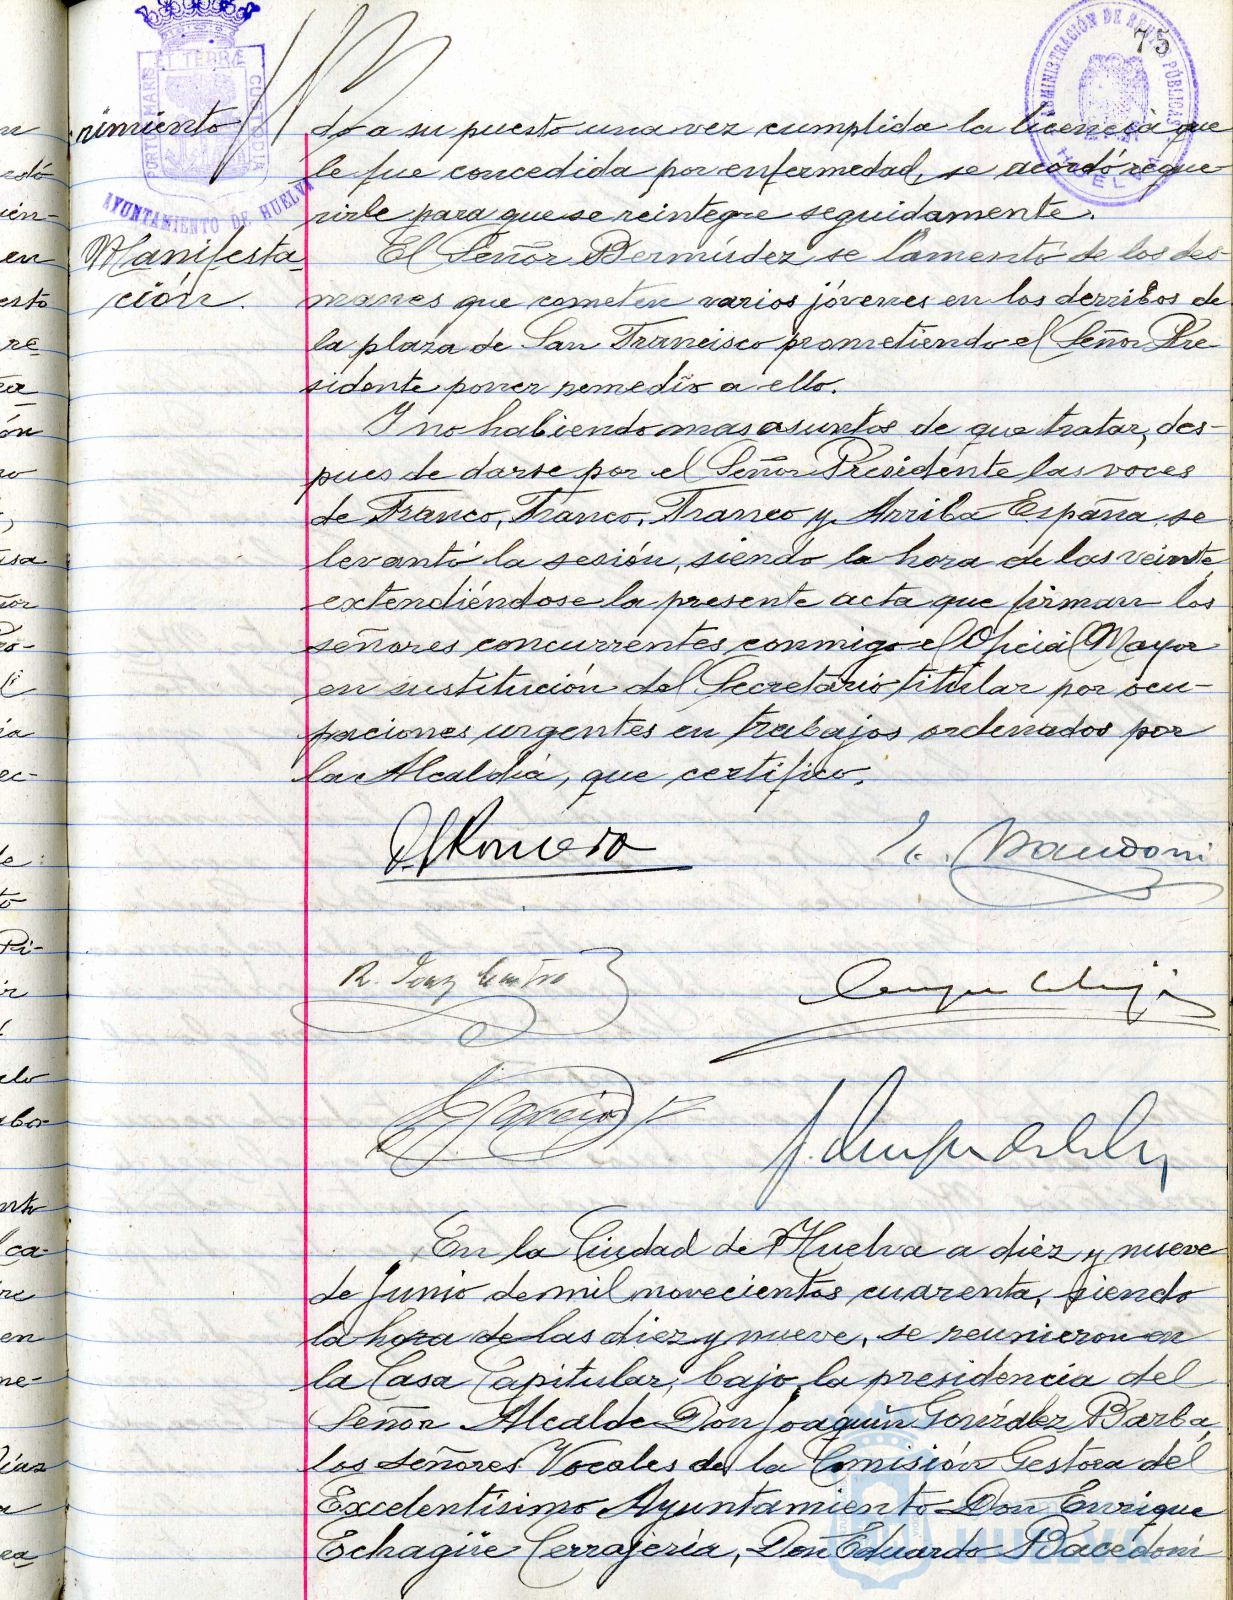 75
PORTUS MARIS ET TERRÆ CUSTODIA
AYUNTAMIENTO DE HUELVA
ADMINISTRACIÓN DE RENTAS PÚBLICAS
HUELVA
rimiento
do a su puesto una vez cumplida la licencia que
le fue concedida por enfermedad, se acordó reque-
rirle para que se reintegre seguidamente.
Manifesta-
ción.
El Señor Bermúdez se lamentó de los des-
manes que cometen varios jóvenes en los derribos de
la plaza de San Francisco prometiendo el Señor Pre
sidente poner remedio a ello.
Y no habiendo mas asuntos de que tratar, des-
pues de darse por el Señor Presidente las voces
de Franco, Franco, Franco y Arriba España, se
levantó la sesión, siendo la hora de las veinte,
extendiéndose la presente acta que firman los
señores concurrentes conmigo el Oficial Mayor
en sustitución del Secretario titular por ocu-
paciones urgentes en trabajos ordenados por
la Alcaldía, que certifico.
Romero
R.
García
En la Ciudad de Huelva a diez y nueve
de Junio de mil novecientos cuarenta, siendo
la hora de las diez y nueve, se reunieron en
la Casa Capitular, bajo la presidencia del
Señor Alcalde Don Joaquín González Barba,
los señores Vocales de la Comisión Gestora del
Excelentísimo Ayuntamiento Don Enrique
Echagüe Cerrajería, Don Eduardo Bacedoni